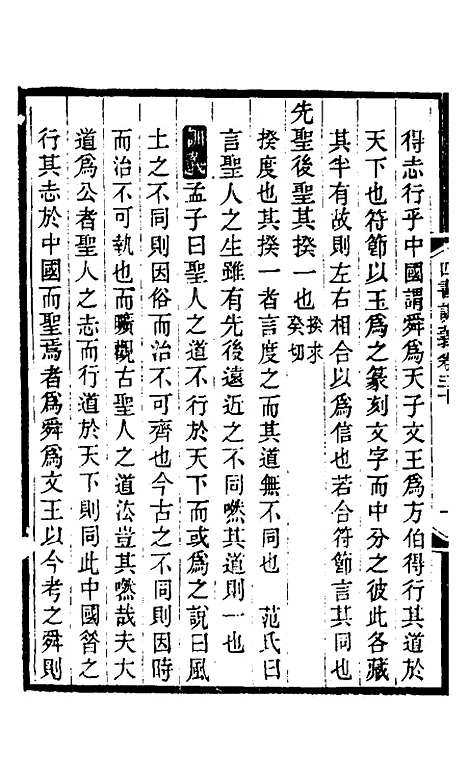 得志行乎中國謂舜爲天子文王爲方伯得行其道於
天下也符節以玉爲之篆刻文字而中分之彼此各藏
其半有故則左右相合以爲信也若合符節言其同也
先聖後聖其揆一也揆求癸切
揆度也其揆一者言度之而其道無不同也 范氏曰
言聖人之生雖有先後遠近之不同然其道則一也
訓義孟子曰聖人之道不行於天下而或爲之說曰風
土之不同則因俗而治不可齊也今古之不同則因時
而治不可執也而曠觀古聖人之道法豈其然哉夫大
道爲公者聖人之志而行道於天下則同此中國答之
行其志於中國而聖焉者爲舜爲文王以今考之舜則
四書訓義卷三十